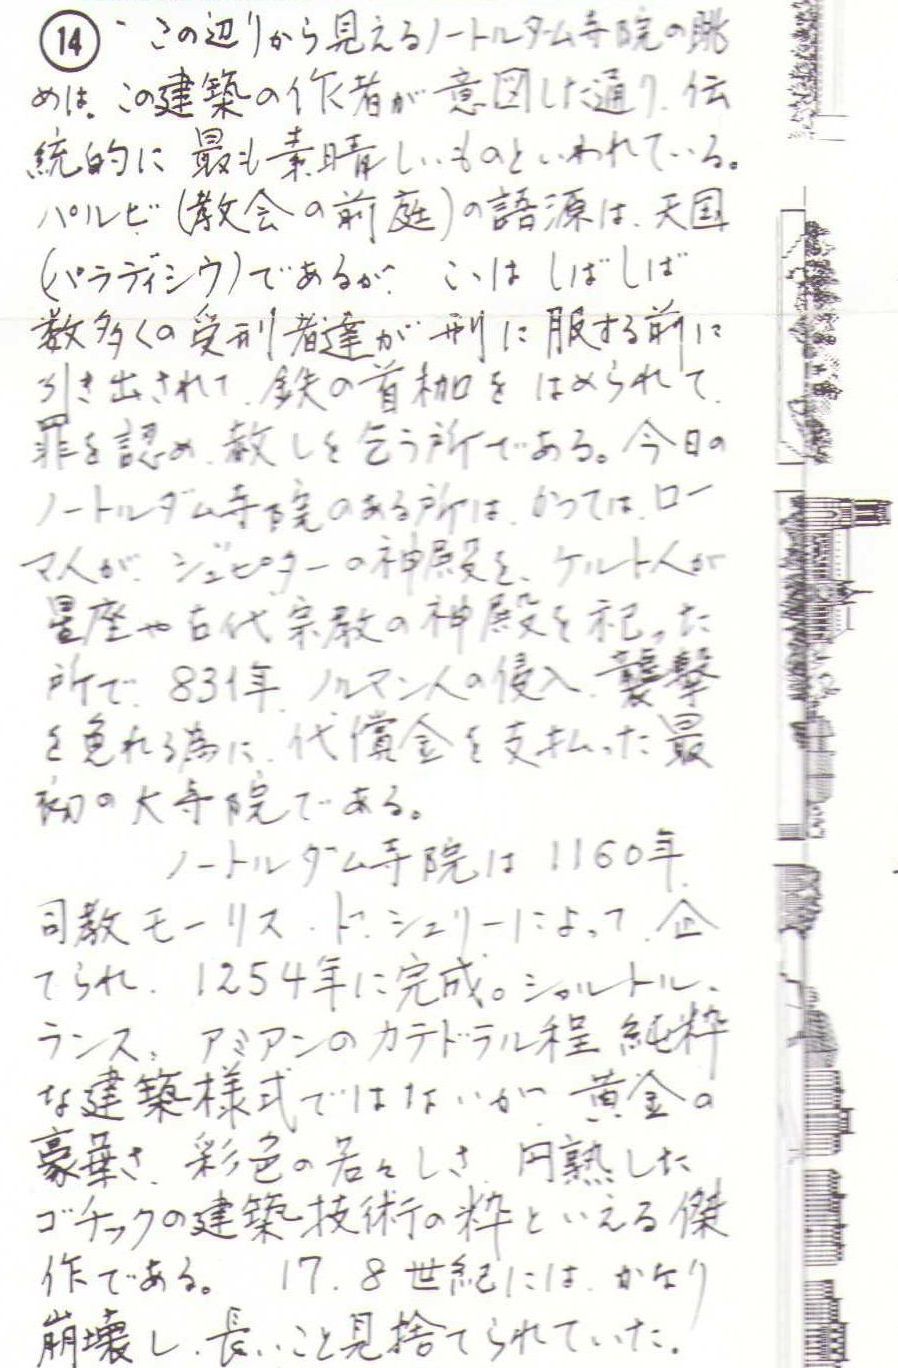 ⑭ この辺りから見えるノートルダーム寺院の眺
めは、この建築の作者が意図した通り、伝
統的に最も素晴しいものといわれている。
パルビ(教会の前庭)の語源は、天国
(パラディシウ)であるが、こゝはしばしば
数多くの受刑者達が刑に服する前に
引き出されて、鉄の首枷をはめられて、
罪を認め、赦しを乞う所である。今日の
ノートルダム寺院のある所は、かつては、ロー
マ人が、ジュピターの神殿を、ケルト人が
星座や古代宗教の神殿を祀った
所で、831年、ノルマン人の侵入、襲撃
を免れる為に、代償金を支払った最
初の大寺院である。
ノートルダム寺院は1160年、
司教モーリス・ド・シュリーによって、企
てられ、1254年に完成。シャルトル、
ランス、アミアンのカテドラル程純粋
な建築様式ではないが、黄金の
豪華さ、彩色の若々しさ、円熟した
ゴチックの建築技術の粋といえる傑
作である。 17.8世紀には、かなり
崩壊し、長いこと見捨てられていた。